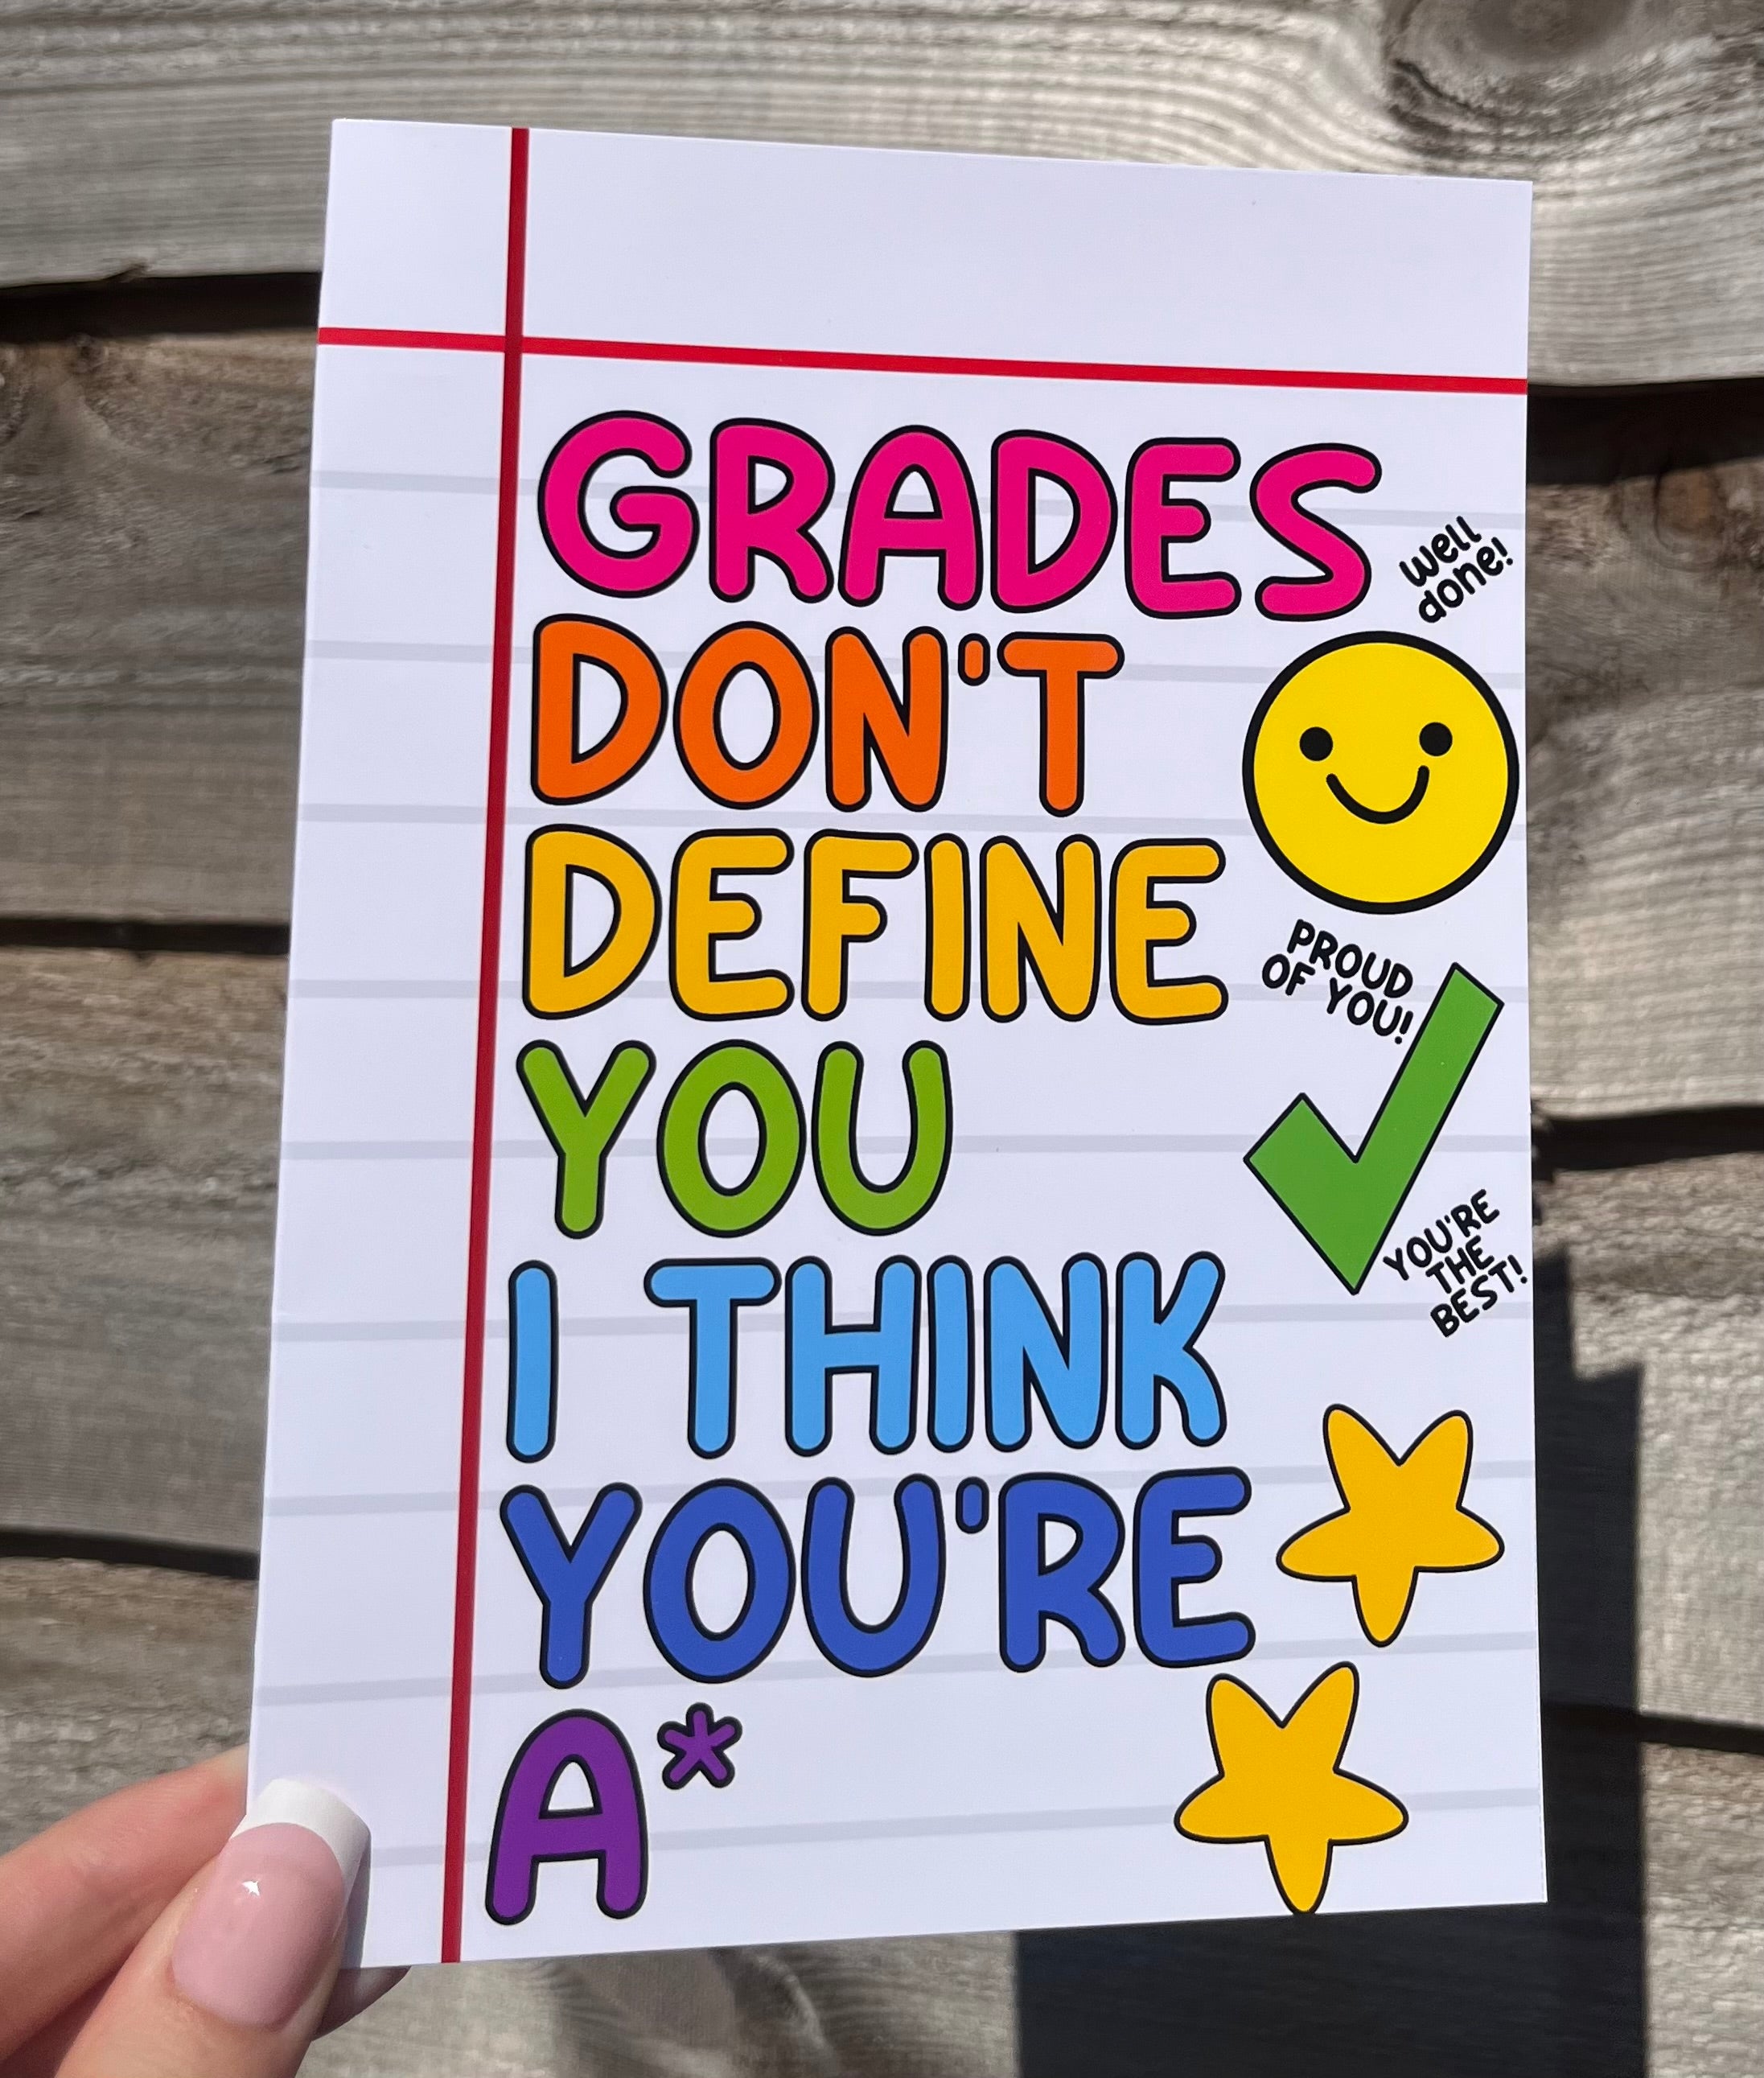 GRADES
well
done!
DON'T
DEFINE
PROUD
OF YOU!
YOU
YOU'RE
THE
BEST!
I THINK
YOU'RE
A*